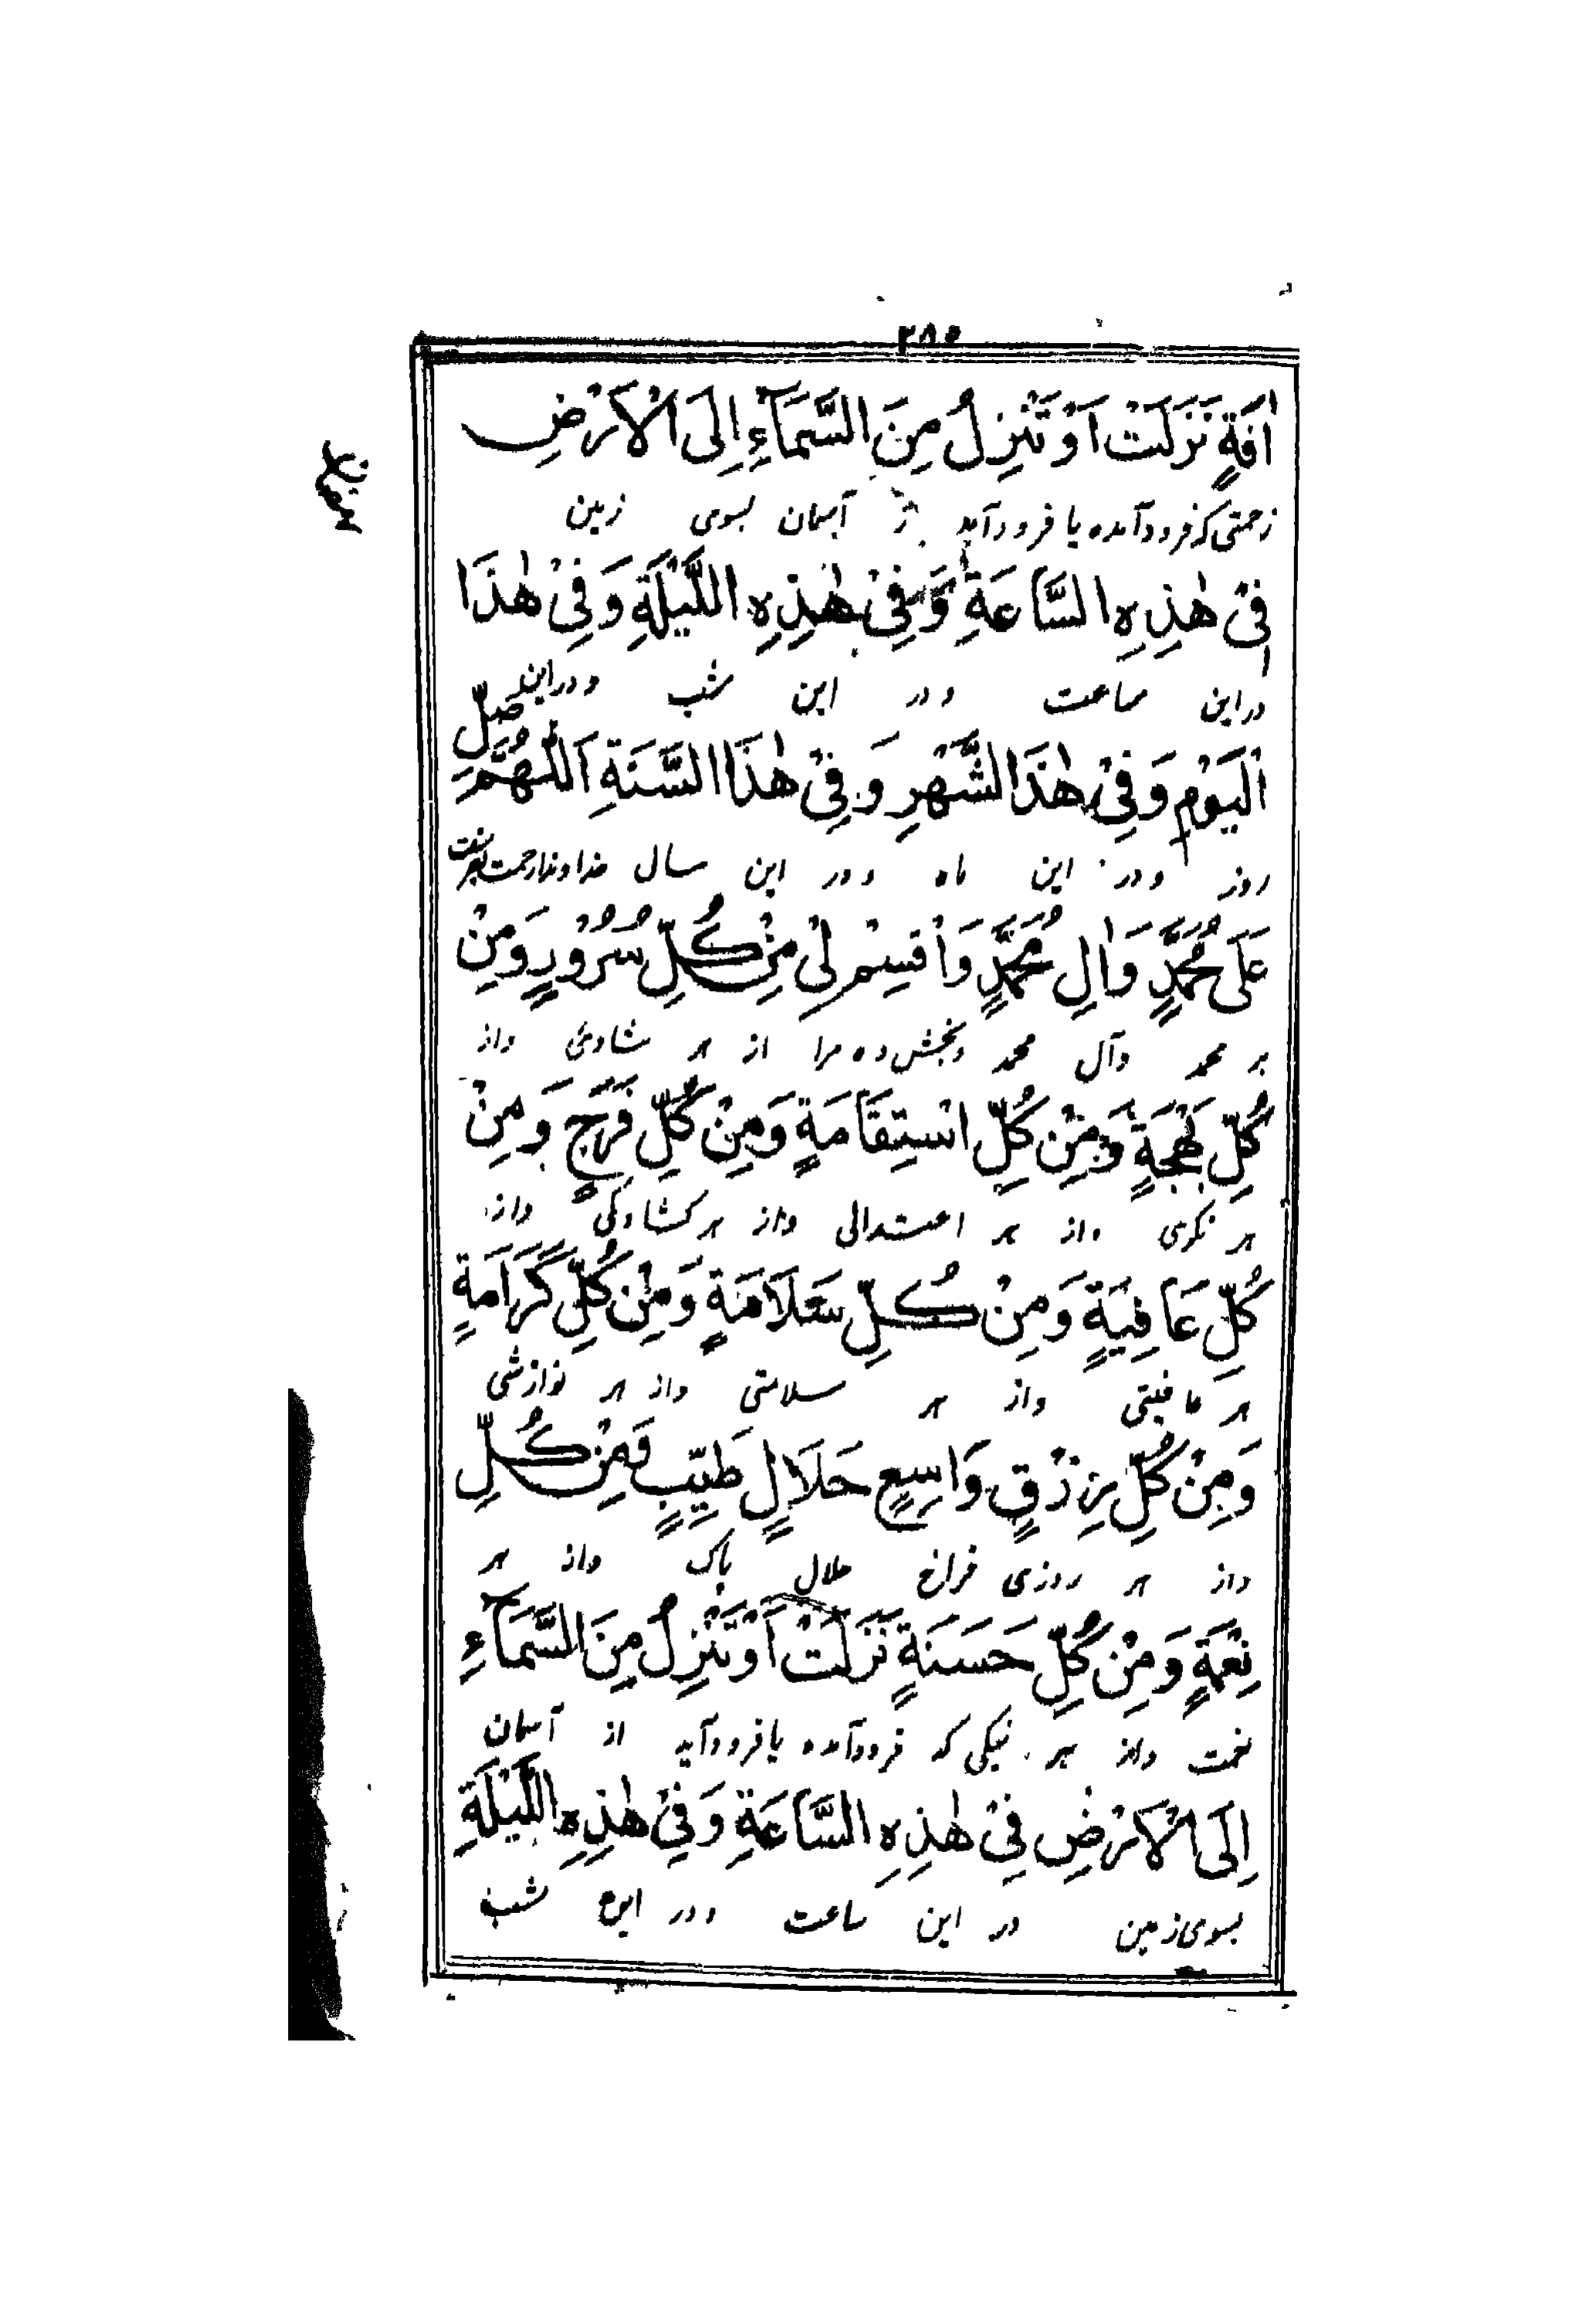 ٢٨٥
اٰفَةٍ نَزَلَتْ اَوْ تَنْزِلُ مِنَ السَّمَآءِ اِلَى الْاَرْضِ
زحمتی که فرود آمده یا فرود آید از آسمان بسوی زمین
فِیْ هٰذِهِ السَّاعَةِ وَفِیْ هٰذِهِ اللَّیْلَةِ وَفِیْ هٰذَا
در این ساعت و در این شب و در این
الْیَوْمِ وَفِیْ هٰذَا الشَّهْرِ وَفِیْ هٰذَا السَّنَةِ اَللّٰهُمَّ صَلِّ
روز و در این ماه و در این سال خداوندا رحمت بفرست
عَلَی مُحَمَّدٍ وَاٰلِ مُحَمَّدٍ وَاقْسِمْ لِیْ مِنْ كُلِّ سُرُوْرٍ وَمِنْ
بر محمد وآل محمد وبخش ده مرا از هر شادئی واز
كُلِّ بَهْجَةٍ وَمِنْ كُلِّ اسْتِقَامَةٍ وَمِنْ كُلِّ فَرَجٍ وَمِنْ
هر نکوی واز هر اعتدالی واز هر کشادگی واز
كُلِّ عَافِیَةٍ وَمِنْ كُلِّ سَلَامَةٍ وَمِنْ كُلِّ كَرَامَةٍ
هر عافیتی واز هر سلامتی واز هر نوازشی
وَمِنْ كُلِّ رِزْقٍ وَاسِعٍ حَلَالٍ طَیِّبٍ وَمِنْ كُلِّ
واز هر روزی فراخ حلال پاک واز هر
نِعْمَةٍ وَمِنْ كُلِّ حَسَنَةٍ نَزَلَتْ اَوْ تَنْزِلُ مِنَ السَّمَآءِ
نعمت واز هر نیکی که فرود آمده یا فرود آید از آسمان
اِلَی الْاَرْضِ فِیْ هٰذِهِ السَّاعَةِ وَفِیْ هٰذِهِ اللَّیْلَةِ
بسوی زمین در این ساعت و در این شب